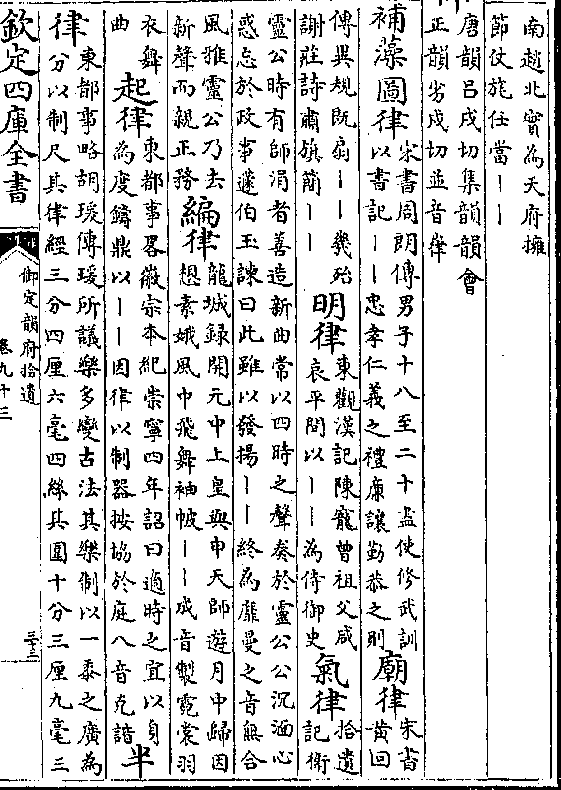 南趙北實為天府擁
節仗旄任當――
唐韻呂戌切集韻韻會
正韻劣戌切並音膟
補藻圖律宋書周朗傳男子十八至二十盡使修武訓
以書記――忠孝仁義之禮廉讓勤恭之則廟律宋書
黄回
傳異規既扇――幾殆
謝莊詩肅旗簡――明律東觀漢記陳寵曾祖父咸
哀平間以――為侍御史氣律拾遺
記衛
靈公時有師涓者善造新曲常以四時之聲奏於靈公公沉湎心
惑忘於政事蘧伯玉諫曰此雖以發揚――終為靡曼之音無合
風雅靈公乃去
新聲而親正務編律龍城録開元中上皇與申天師遊月中歸因
想素娥風中飛舞袖帔――成音製霓裳羽
衣舞
曲起律東都事畧徽宗本紀崇寧四年詔曰適時之宜以身
為度鑄鼎以――因律以制器按協於庭八音克諧半
律東都事略胡瑗傳瑗所議樂多變古法其樂制以一黍之廣為
分以制尺其律經三分四厘六毫四絲其圍十分三厘九毫三
欽定四庫全書
御定韻府拾遺
卷九十三
三十三